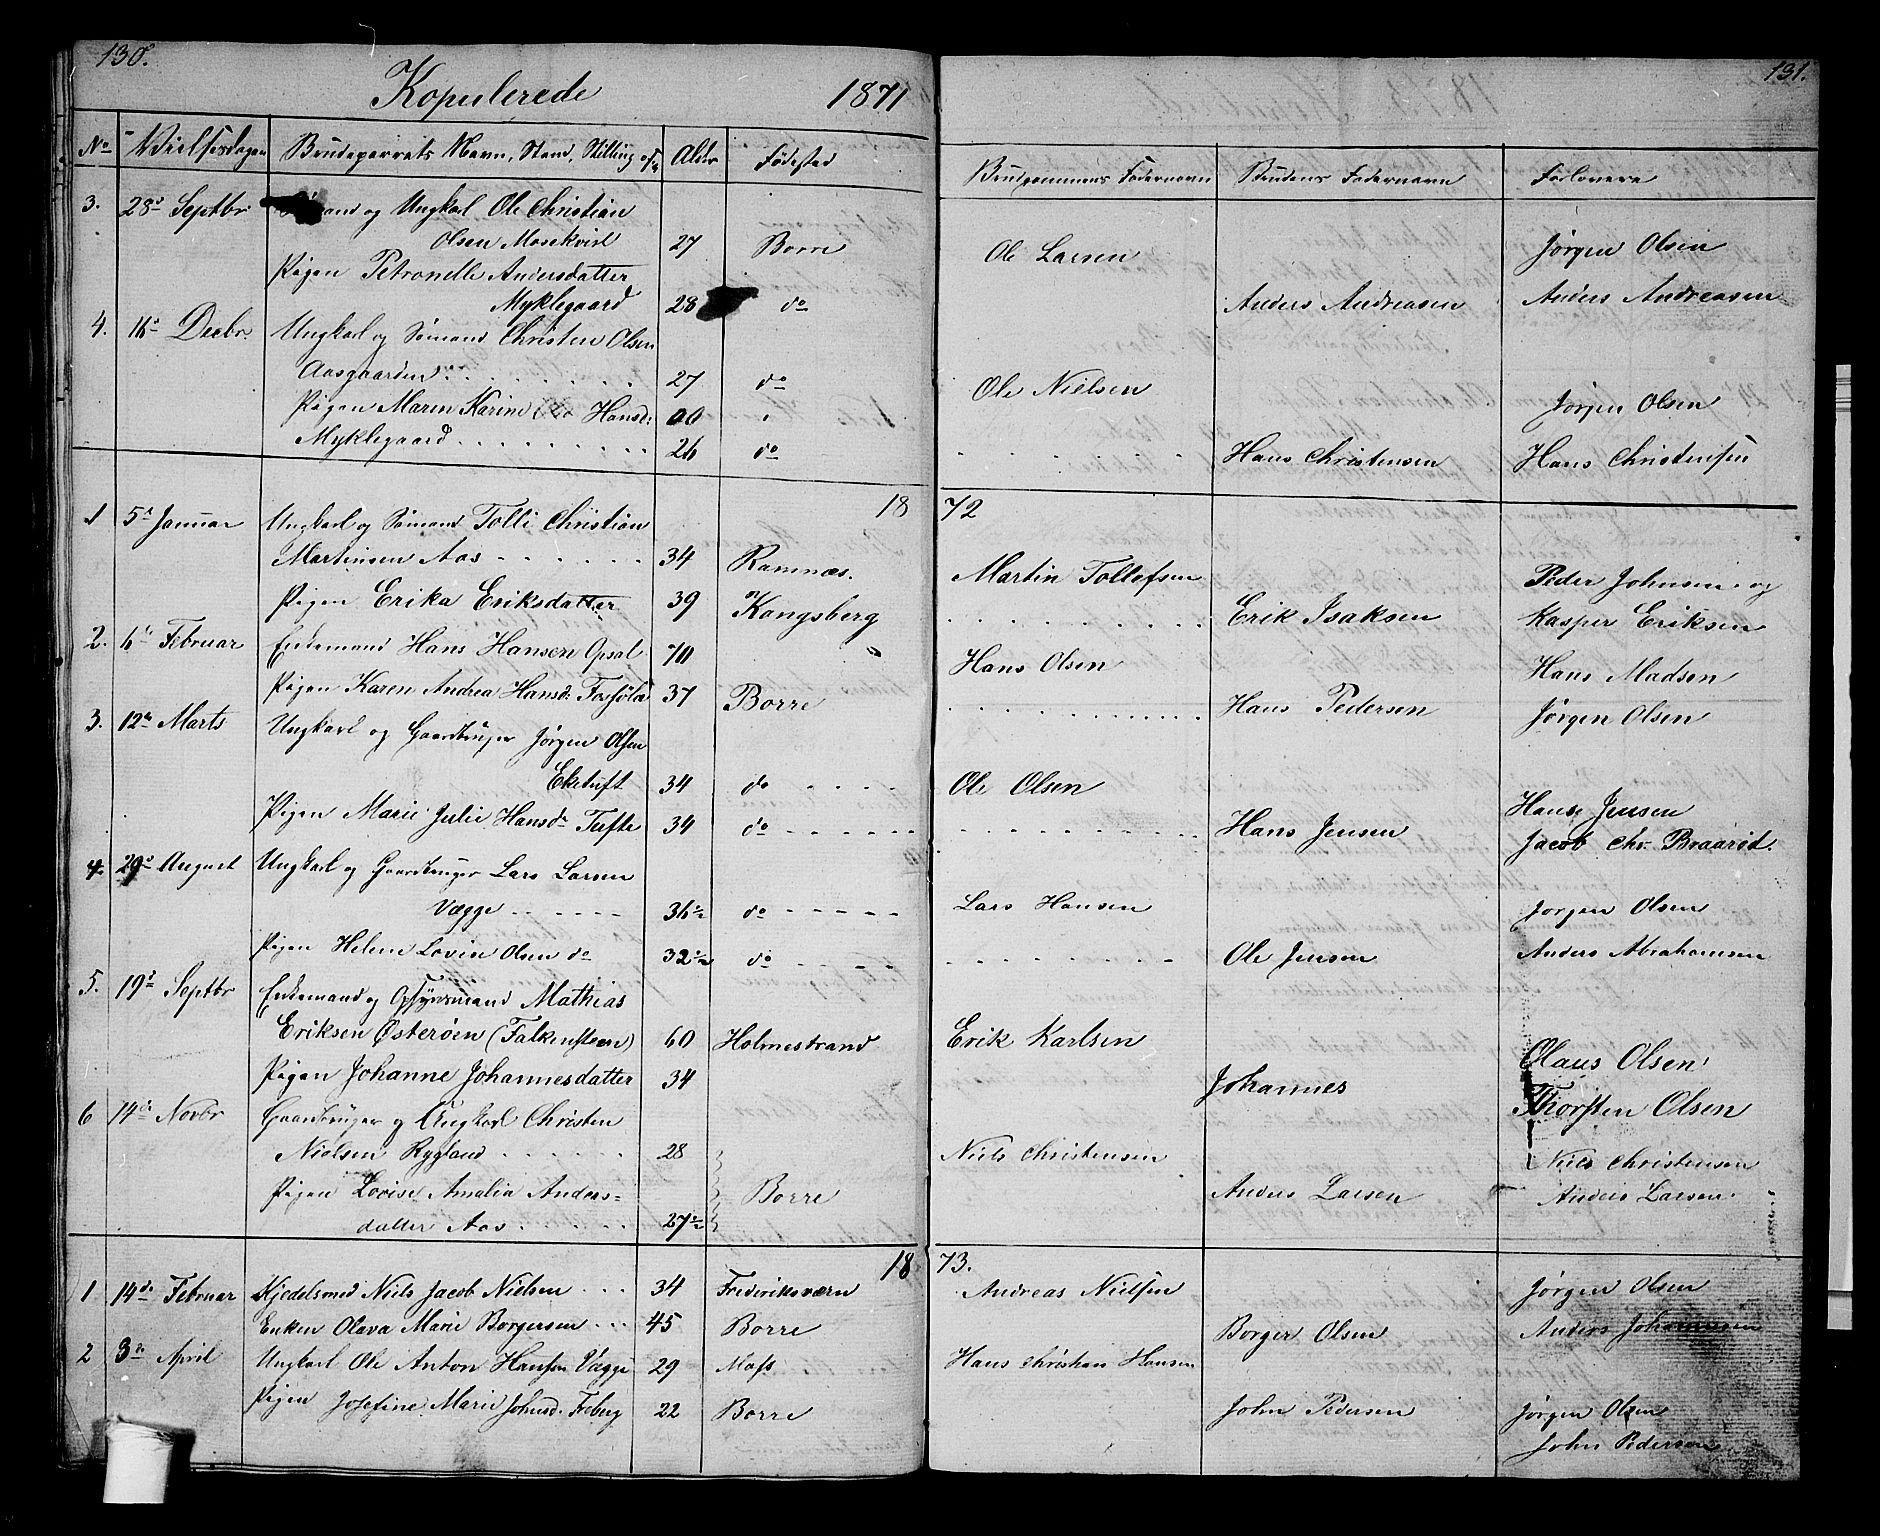 130.
Kopulerede 1871
No Vielsesdagen Brudeparrets Navn, Stand, Stilling Alder Fødested
3. 28de Septbr Sømand og Ungkarl Ole Christian
Olsen Mosekvist 27 Borre
Pigen Petronelle Andersdatter
Myklegaard 28 do
4. 16de Decbr. Ungkarl og Sømand Christen Olsen
Aasgaarden 27 do
Pigen Maren Karine Hansd:
Myklegaard 26 do
1872
1 5te Januar Ungkarl og Sømand Tolli Christian
Martinsen Aas 34 Ramnæs.
Pigen Erika Eriksdatter 39 Kongsberg
2. 6te Februar Enkemand Hans Hansen Opsal 70
Pigen Karen Andrea Hansd: 37 Borre
3. 12te Marts Ungkarl og Gaardbruger Jørgen Olsen
Eketuft 34 do
Pigen Marie Julie Hansdr Tufte 34 do
4. 29de August Ungkarl og Gaardbruger Lars Larsen
Vægge 36 1/2 do
Pigen Helene Lovise Olsen do 32 1/2 do
5. 19de Septbr Enkemand og Opsynsmand Mathias
Eriksen Østerøen (Falkensteen) 60 Holmestrand
Pigen Johanne Johannesdatter 34
6 14de Novbr Gaardbruger og Ungkarl Christen
Nielsen Rygland 28
Pigen Lovise Amalia Anders=
datter Aas 27 1/2 Borre
1873.
1 14de Februar Kjedelsmed Niels Jacob Nielsen 34 Frederiksværn
Enken Olava Marie Borgersen 45 Borre
2 3de April Ungkarl Ole Anton Hansen Vægge 29 Moss
Pigen Josefine Marie Johnsd. Freberg 22 Borre
131.
Brudgommens Fadernavn Brudens Fadernavn Forlovere
Ole Larsen Jørgen Olsen
Anders Andreasen Anders Andreasen
Ole Nielsen Jørgen Olsen
Hans Christensen Hans Christensen
Martin Tollefsen Peder Johnsen og
Erik Isaksen Kasper Eriksen
Hans Olsen Hans Madsen
Hans Pedersen Jørgen Olsen
Ole Olsen Hans Jensen
Hans Jensen Jacob Chr. Braarød.
Lars Hansen Jørgen Olsen
Ole Jensen Anders Abrahamsen
Erik Karlsen Olaus Olsen
Johannes Thorsten Olsen
Niels Christensen Niels Christensen
Anders Larsen Anders Larsen.
Andreas Nielsen Jørgen Olsen
Borger Olsen Anders Johannesen
Hans Christian Hansen
John Pedersen Jørgen Olsen
John Pedersen